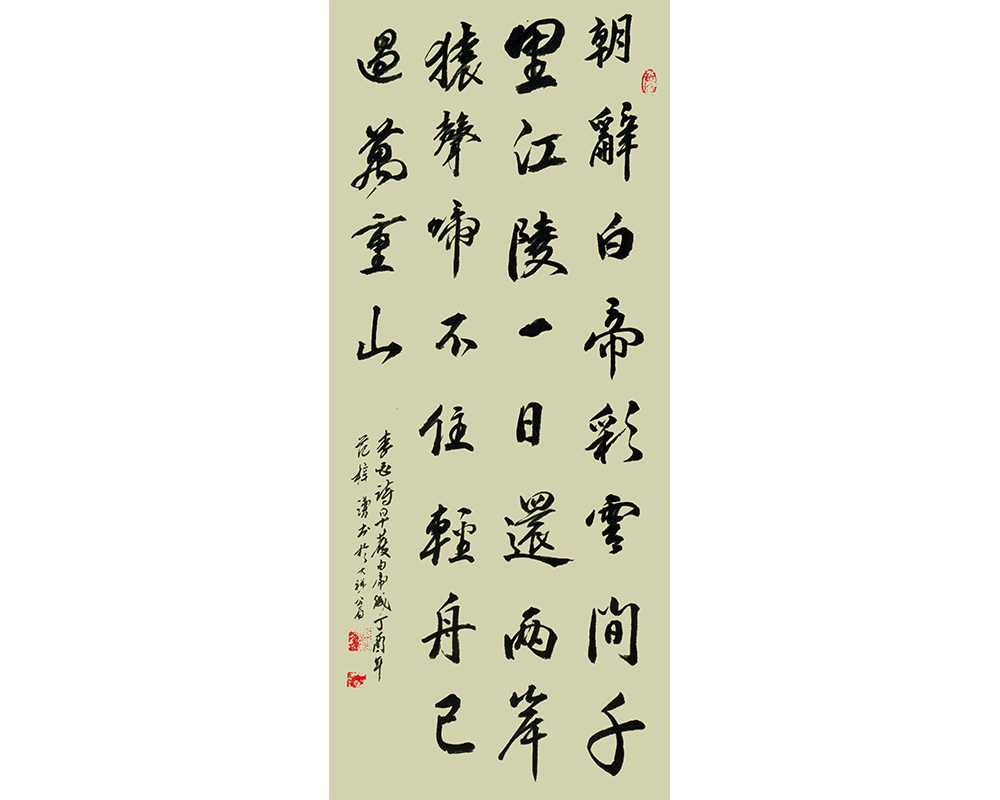 朝辭白帝彩雲間千
里江陵一日還兩岸
猿聲啼不住輕舟已
過萬重山
李白詩早發白帝城丁酉年
范梓 書於大